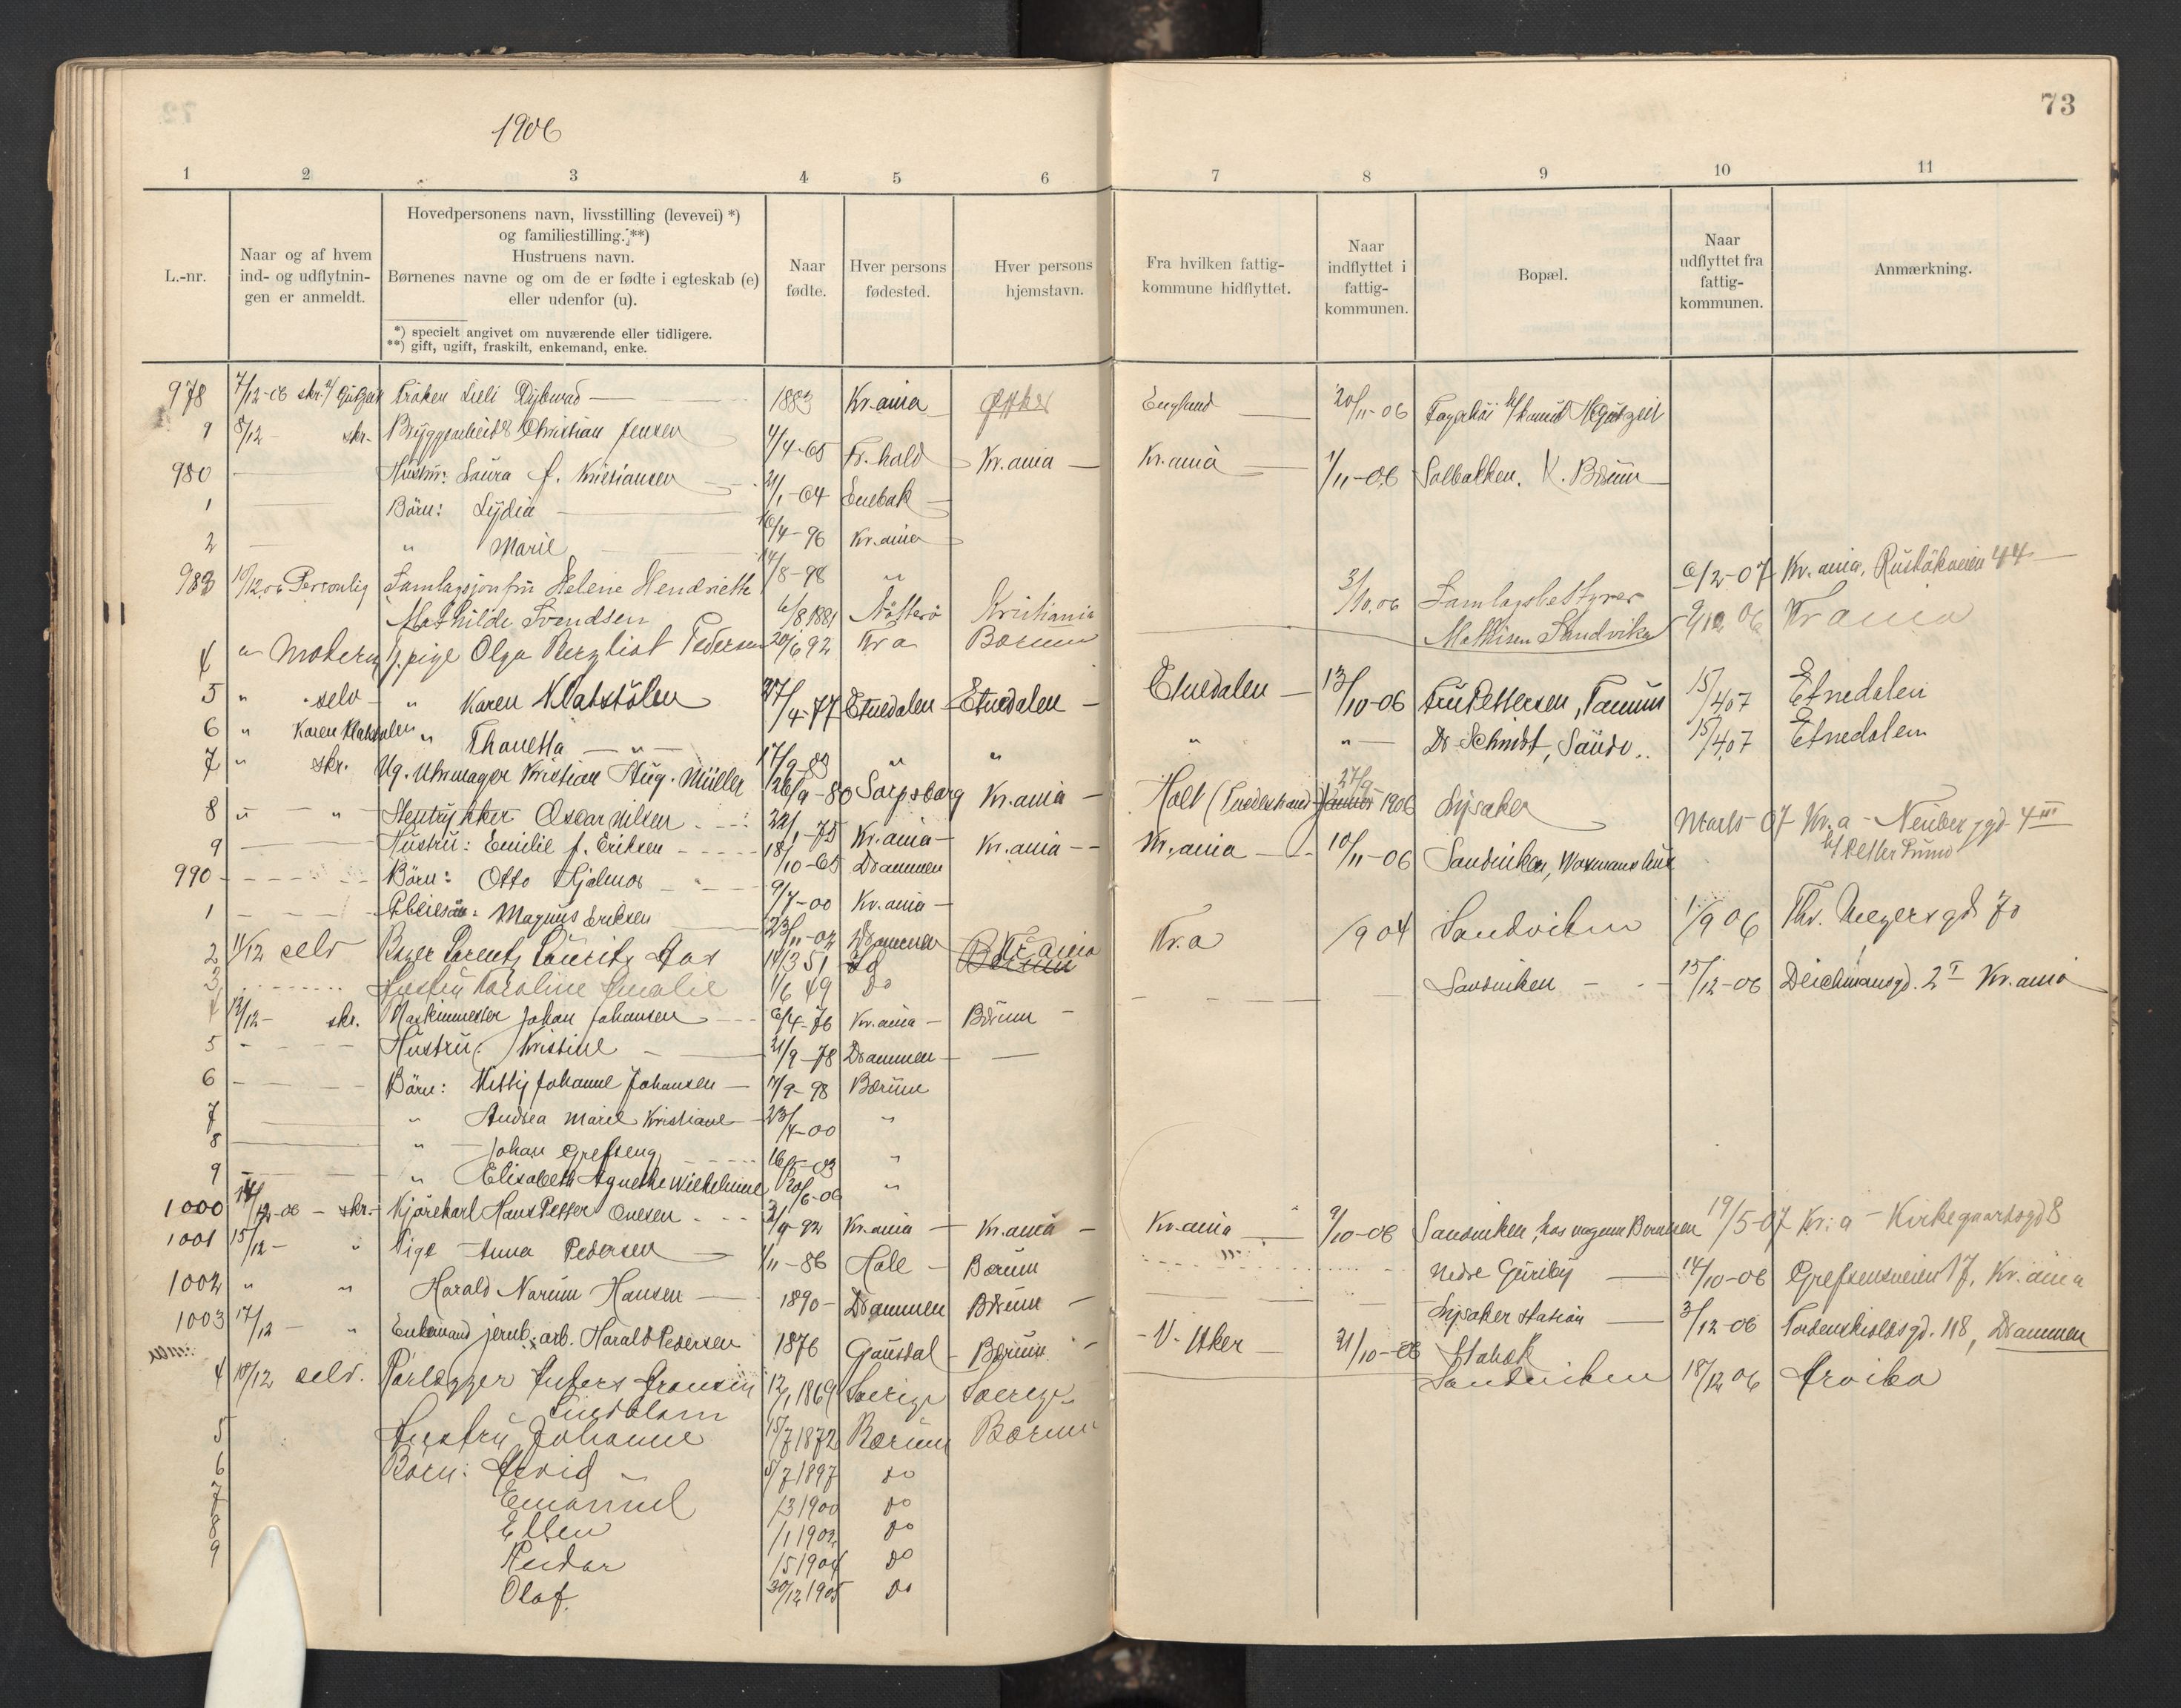 73
1906
1 2 3 4 5 6 7 8 9 10 11
L.-nr.
Naar og af hvem
ind- og udflytnin-
gen er anmeldt.
Hovedpersonens navn, livsstilling (levevei) *)
og familiestilling. **)
Hustruens navn.
Børnenes navne og om de er fødte i egteskab (e)
eller udenfor (u).
*) specielt angivet om nuværende eller tidligere.
**) gift, ugift, fraskilt, enkemand, enke.
Naar
fødte.
Hver persons
fødested.
Hver persons
hjemstavn.
Fra hvilken fattig-
kommune hidflyttet.
Naar
indflyttet i
fattig-
kommunen.
Bopæl.
Naar
udflyttet fra
fattig-
kommunen.
Anmærkning.
978 7/12-06 skr. Frøken Lieli 1883 Kr.ania England 20/11-06
9 8/12 skr. Bryggearbeid. Christian Jensen 4/4-65 Fr.hald Kr.ania Kr.ania 1/11-06 Solbakken. V. Bærum
980 Hustru: Laura f. Kristiansen 21/1-64 Enebak
1 Börn: Lydia 16/4-96 Kr.ania
2 " Marie 14/8-98 "
983 10/12.06 Personlig Samlagsjomfru Helene Hendriette 6/8 1881 Nötterö Kristiania 3/10.06 Samlagsbestyrer 6/2-07 Kr.ania, Rusölökveien 44
Mathilde Svendsen Mathisen Sandvika 9/12 06 Krania
4 " Moderen Tj.pige Olga Bergliot Pedersen 20/6 92 Kra Bærum
5 " selv " Karen Klatstölen 27/4-77 Etnedalen Etnedalen Etnedalen 13/10-06 Fru Pettersen, Tanum 15/4 07 Etnedalen
6 " Karen Klatstölen " Thonetta " 17/9-83 " " " " Dr Schmidt, Sandv. 15/4 07 Etnedalen
7 " skr. Ug. Uhrmager Kristian Aug. Müller 26/9-80 Sarpsborg Kr.ania Holt (Tvedestrand 27/9 Januar 1906 Lysaker Marts 07 Kr.a - Neuberggd 4 III
8 " " Stentrykker Oscar Nilsen 22/1-75 Kr.ania Kr.ania Kr.ania 10/11-06 Sandviken,
9 Hustru: Emilie f. Eriksen 18/10-65 Drammen
990 Börn: Otto Hjalmar 9/7-00 Kr.ania
1 Pleiesön: Magnus Eriksen 23/11-02 Drammen
2 11/12 selv Bager Lorentz Lauritz Aas 14/3 51 Id Bærum Kr.ania Kr.a /9 04 Sandviken 1/9 06 Thv. Meyersgd 70
3 Hustru Karoline Amalie 1/6 49 do
4 12/12 skr. Maskinmester Johan Johansen 6/4-76 Kr.ania Bærum Sandviken 15/12-06 Deichmansgd. 2 I Kr.ania
5 Hustru: Kristine 21/9-78 Drammen
6 Börn: Kitty Johanne Johansen 7/9-98 Bærum
7 " Andrea Marie Kristiane 23/4-00 "
8 " Johan Grefseng 16/5-03 "
9 " Elisabeth Agnethe Wilhelmine 20/6-06 "
1000 14/12-06 skr. Kjörekarl Hans Petter Ovesen 3/9-92 Kr.ania Kr.ania Kr.ania 9/10-06 Sandviken, hos 19/5-07 Kr.a - Kirkegaardsgd 8
1001 15/12 " Pige Anna Pedersen 1/11-86 Hole Bærum Nedre Gjøriby 14/10-06 Grefsensveien 17, Kr.ania
1002 " " Harald Narum Hansen 1890 Drammen Bærum Lysaker station 3/12-06 Tordenskioldsgd. 118, Drammen
1003 17/12 " Enkemand jernb.arb. Harald Pedersen 1876 Gausdal Bærum V. Aker 31/10-06 Stabæk
4 18/12 selv. Rørlægger Anders 12/1 1869 Sverige Sverige Sandviken 18/12 06 Arvika
Lindblom
5 Hustru Johanne 15/7 1872 Bærum Bærum
6 Börn: Arvid 5/7 1897 do
7 Emanuel /3 1900 do
8 Ellen /1 1902 do
9 Reidar /5 1904 do
Olaf. 30/12 1905 do